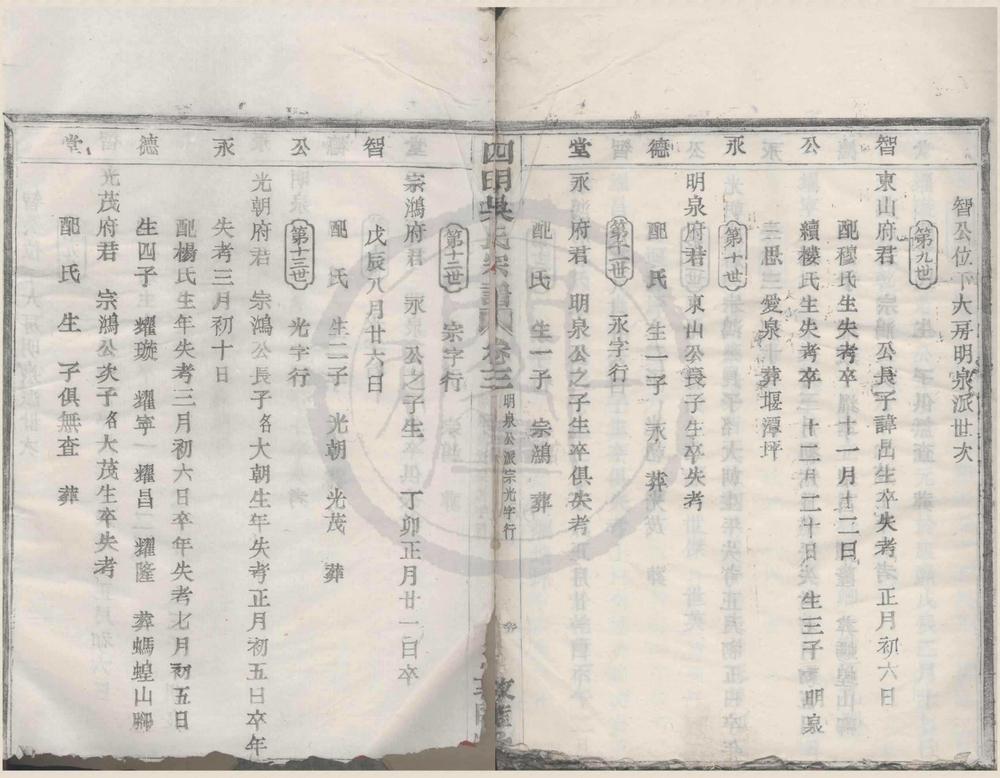 智公位下大房明泉派世次
第九世
智
東山府君 宗鴻公長子諱昌生卒失考正月初六日
配穆氏生失考卒十一月十二日
公
續樓氏生失考卒十二月二十日生三子 明泉
思三 愛泉 葬堰潭坪
永
第十世
明泉府君東山公長子生卒失考
德
配 氏 生一子 永 葬
第十一世
永字行
堂
永 府君 明泉公之子生卒俱失考
配 氏 生一子 宗鴻 葬
四明吳氏宗譜 卷三
明泉公派宗光字行
第十二世
宗字行
宗鴻府君 永 公之子生 丁卯正月廿一日卒
智
戊辰八月廿六日
配 氏 生二子 光朝 光茂 葬
公
第十三世
光字行
光朝府君 宗鴻公長子名大朝生年失考正月初五日卒年
永
失考三月初十日
配楊氏生年失考三月初六日卒年失考七月初五日
德
生四子 耀璇 耀寧 耀昌 耀隆 葬螞蝗山腳
光茂府君 宗鴻公次子名大茂生卒失考
堂
配 氏 生 子俱無查 葬